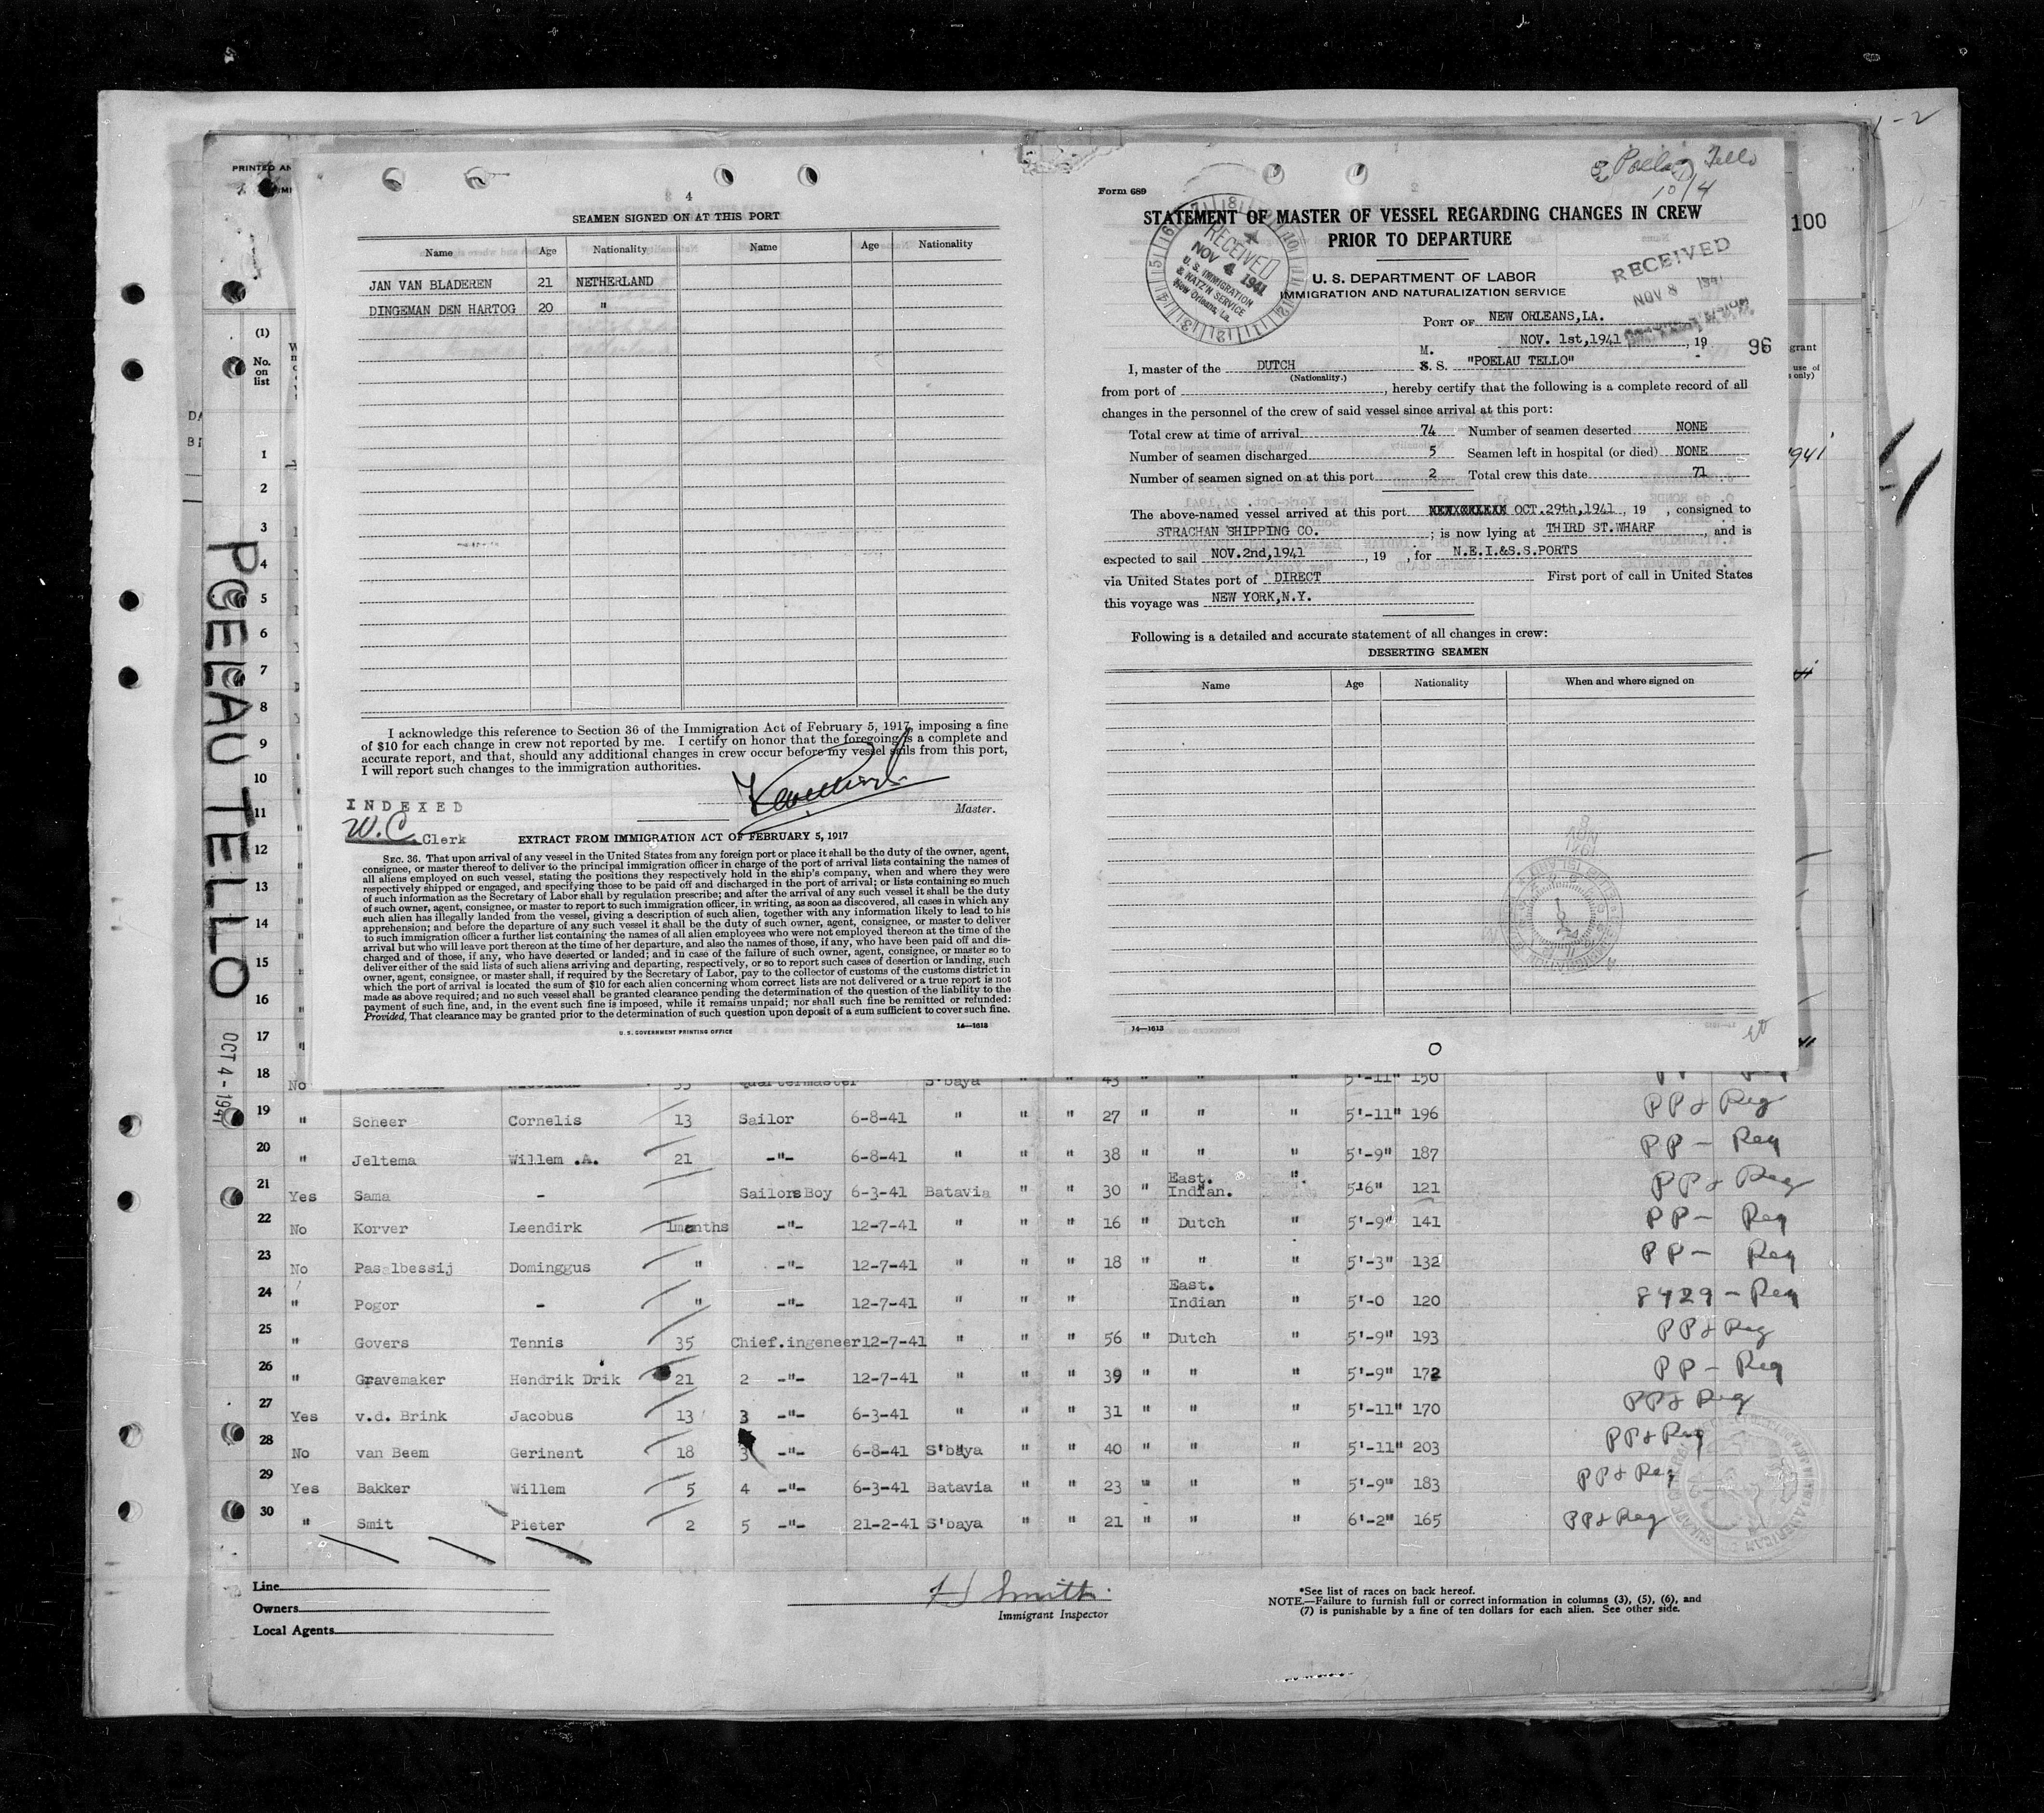 PRINTED AN
4
SEAMEN SIGNED ON AT THIS PORT
Name Age Nationality Name Age Nationality
JAN VAN BLADEREN 21 NETHERLAND
DINGEMAN DEN HARTOG 20 "
I acknowledge this reference to Section 36 of the Immigration Act of February 5, 1917, imposing a fine
of $10 for each change in crew not reported by me. I certify on honor that the foregoing is a complete and
accurate report, and that, should any additional changes in crew occur before my vessel sails from this port,
I will report such changes to the immigration authorities.
Master.
INDEXED
W.C. Clerk
EXTRACT FROM IMMIGRATION ACT OF FEBRUARY 5, 1917
SEC. 36. That upon arrival of any vessel in the United States from any foreign port or place it shall be the duty of the owner, agent,
consignee, or master thereof to deliver to the principal immigration officer in charge of the port of arrival lists containing the names of
all aliens employed on such vessel, stating the positions they respectively hold in the ship's company, when and where they were
respectively shipped or engaged, and specifying those to be paid off and discharged in the port of arrival; or lists containing so much
of such information as the Secretary of Labor shall by regulation prescribe; and after the arrival of any such vessel it shall be the duty
of such owner, agent, consignee, or master to report to such immigration officer, in writing, as soon as discovered, all cases in which any
such alien has illegally landed from the vessel, giving a description of such alien, together with any information likely to lead to his
apprehension; and before the departure of any such vessel it shall be the duty of such owner, agent, consignee, or master to deliver
to such immigration officer a further list containing the names of all alien employees who were not employed thereon at the time of the
arrival but who will leave port thereon at the time of her departure, and also the names of those, if any, who have been paid off and dis-
charged and of those, if any, who have deserted or landed; and in case of the failure of such owner, agent, consignee, or master so to
deliver either of the said lists of such aliens arriving and departing, respectively, or so to report such cases of desertion or landing, such
owner, agent, consignee, or master shall, if required by the Secretary of Labor, pay to the collector of customs of the customs district in
which the port of arrival is located the sum of $10 for each alien concerning whom correct lists are not delivered or a true report is not
made as above required; and no such vessel shall be granted clearance pending the determination of the question of the liability to the
payment of such fine, and, in the event such fine is imposed, while it remains unpaid; nor shall such fine be remitted or refunded:
Provided, That clearance may be granted prior to the determination of such question upon deposit of a sum sufficient to cover such fine.
U. S. GOVERNMENT PRINTING OFFICE 14—1613
Poelau Tello
10/4
Form 689
STATEMENT OF MASTER OF VESSEL REGARDING CHANGES IN CREW
PRIOR TO DEPARTURE
U. S. DEPARTMENT OF LABOR
IMMIGRATION AND NATURALIZATION SERVICE
RECEIVED
NOV 4 1941
U. S. IMMIGRATION
& NATZ'N SERVICE
New Orleans, La.
RECEIVED
NOV 8 1941
100
PORT OF NEW ORLEANS,LA.
NOV. 1st,1941, 19
96
I, master of the DUTCH M. S. S. "POELAU TELLO"
(Nationality.)
from port of , hereby certify that the following is a complete record of all
changes in the personnel of the crew of said vessel since arrival at this port:
Total crew at time of arrival 74 Number of seamen deserted NONE
Number of seamen discharged 5 Seamen left in hospital (or died) NONE
Number of seamen signed on at this port 2 Total crew this date 71
The above-named vessel arrived at this port OCT.29th,1941, 19 , consigned to
STRACHAN SHIPPING CO. ; is now lying at THIRD ST.WHARF , and is
expected to sail NOV.2nd,1941 , 19 , for N.E.I.&S.S.PORTS
via United States port of DIRECT First port of call in United States
this voyage was NEW YORK,N.Y.
Following is a detailed and accurate statement of all changes in crew:
DESERTING SEAMEN
Name Age Nationality When and where signed on
14—1613
POELAU TELLO
OCT 4 - 1941
(1)
No.
on
list
1
2
3
4
5
6
7
8
9
10
11
12
13
14
15
16
17
18 No 35 Quartermaster S'baya " " 43 " " 5'-11" 150
19 " Scheer Cornelis 13 Sailor 6-8-41 " " " 27 " " " 5'-11" 196 PP & Reg
20 " Jeltema Willem .A. 21 -"- 6-8-41 " " " 38 " " " 5'-9" 187 PP - Reg
21 Yes Sama - Sailors Boy 6-3-41 Batavia " " 30 " East. Indian. " 5'6" 121 PP & Reg
22 No Korver Leendirk 1months -"- 12-7-41 " " " 16 " Dutch " 5'-9" 141 PP - Reg
23 No Pasalbessij Dominggus " -"- 12-7-41 " " " 18 " " " 5'-3" 132 PP - Reg
24 " Pogor - " -"- 12-7-41 " " " East. Indian " 5'-0 120 8429 - Reg
25 " Govers Tennis 35 Chief.ingeneer 12-7-41 " " " 56 " Dutch " 5'-9" 193 PP & Reg
26 " Gravemaker Hendrik Drik 21 2 -"- 12-7-41 " " " 39 " " " 5'-9" 172 PP - Reg
27 Yes v.d. Brink Jacobus 13 3 -"- 6-3-41 " " " 31 " " " 5'-11" 170 PP & Reg
28 No van Beem Gerinent 18 3 -"- 6-8-41 S'baya " " 40 " " " 5'-11" 203 PP & Reg
29 Yes Bakker Willem 5 4 -"- 6-3-41 Batavia " " 23 " " " 5'-9" 183 PP & Reg
30 " Smit Pieter 2 5 -"- 21-2-41 S'baya " " 21 " " " 6'-2" 165 PP & Reg
Line
Owners
Local Agents
H Smith
Immigrant Inspector
*See list of races on back hereof.
NOTE.—Failure to furnish full or correct information in columns (3), (5), (6), and
(7) is punishable by a fine of ten dollars for each alien. See other side.